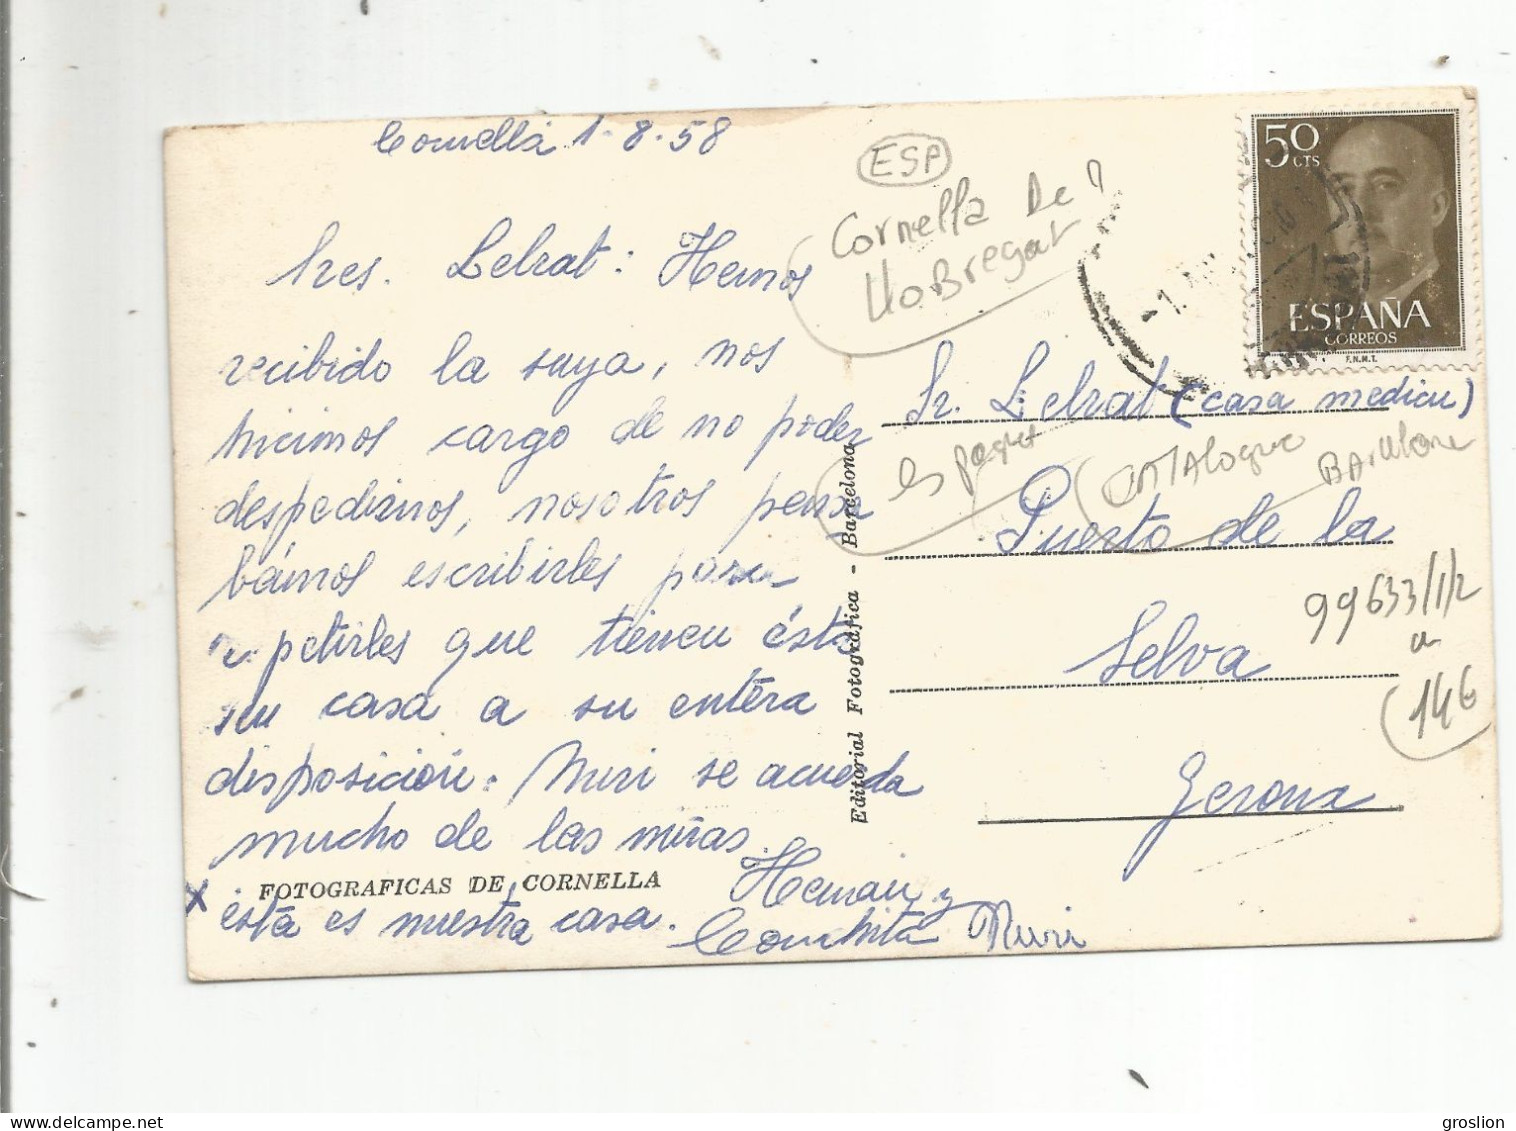 Cornellá 1-8-58
Sres. Lelrat: Hemos
recibido la suya, nos
hicimos cargo de no poder
despedirnos, nosotros pensa
bámos escribirles para
petirles que tienen ésta
su casa a su entéra
disposición. Nuri se acuerda
mucho de las niñas.
FOTOGRAFICAS DE CORNELLA
X
está es nuestra casa.
Hernan y
Conchita Nuri
Editorial Fotográfica - Barcelona
ESP
Cornella De
LLOBregat
50
CTS
ESPAÑA
CORREOS
F.N.M.T.
Sr. Lelrat (casa medicu)
espagne
CATALogne
BARCelone
Puerto de la
Selva
Gerona
99633/1/2
a
146
delcampe.net
groslion